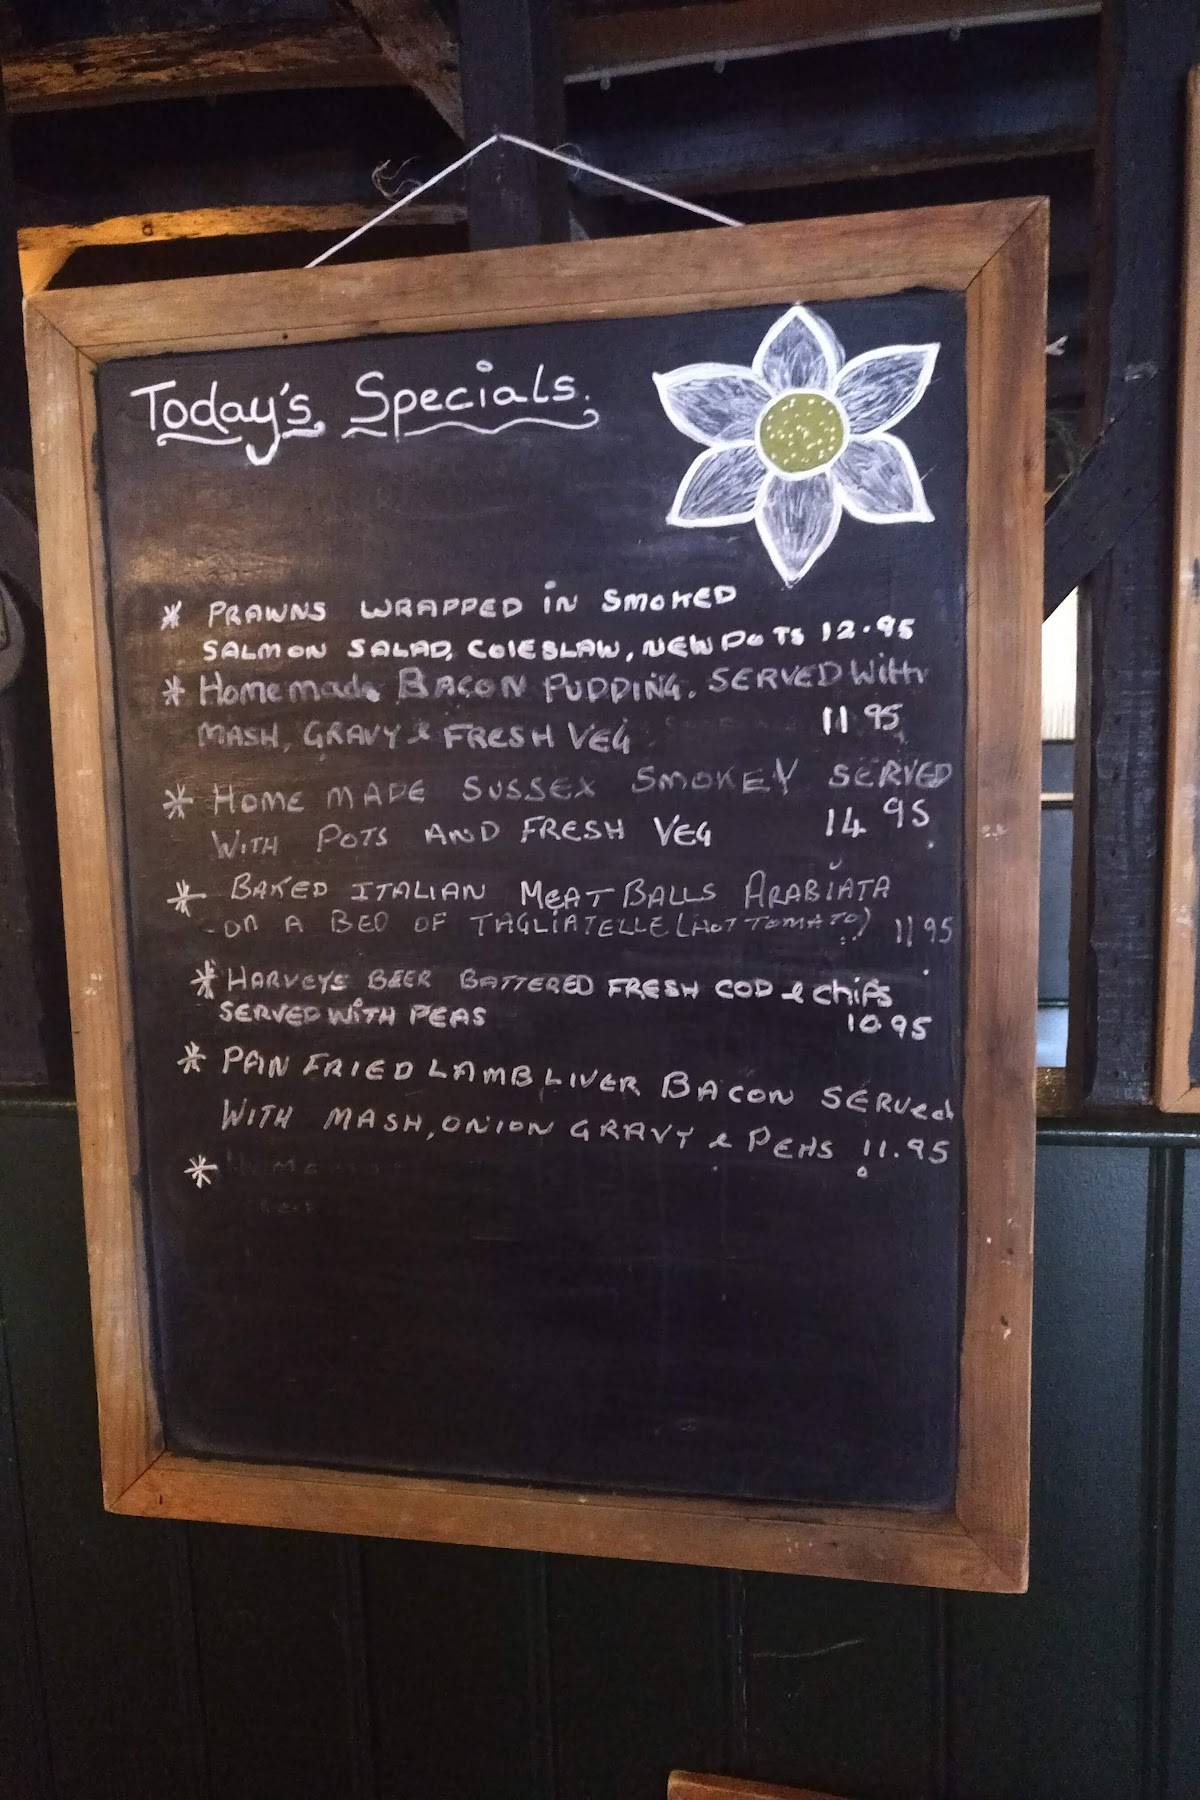 Today's Specials.
* PRAWNS WRAPPED IN SMOKED
SALMON SALAD, COLESLAW, NEW POTS 12.95
* Homemade BACON PUDDING. SERVED With
MASH, GRAVY & FRESH VEG 11 95
* HOME MADE SUSSEX SMOKEY SERVED
WITH POTS AND FRESH VEG 14 95
* BAKED ITALIAN MEATBALLS ARABIATA
- ON A BED OF TAGLIATELLE (HOT TOMATO) 11 95
* HARVEYS BEER BATTERED FRESH COD & chips
SERVED WITH PEAS 10.95
* PAN FRIED LAMB LIVER BACON SERVed
WITH MASH, ONION GRAVY & PEAS 11.95
*